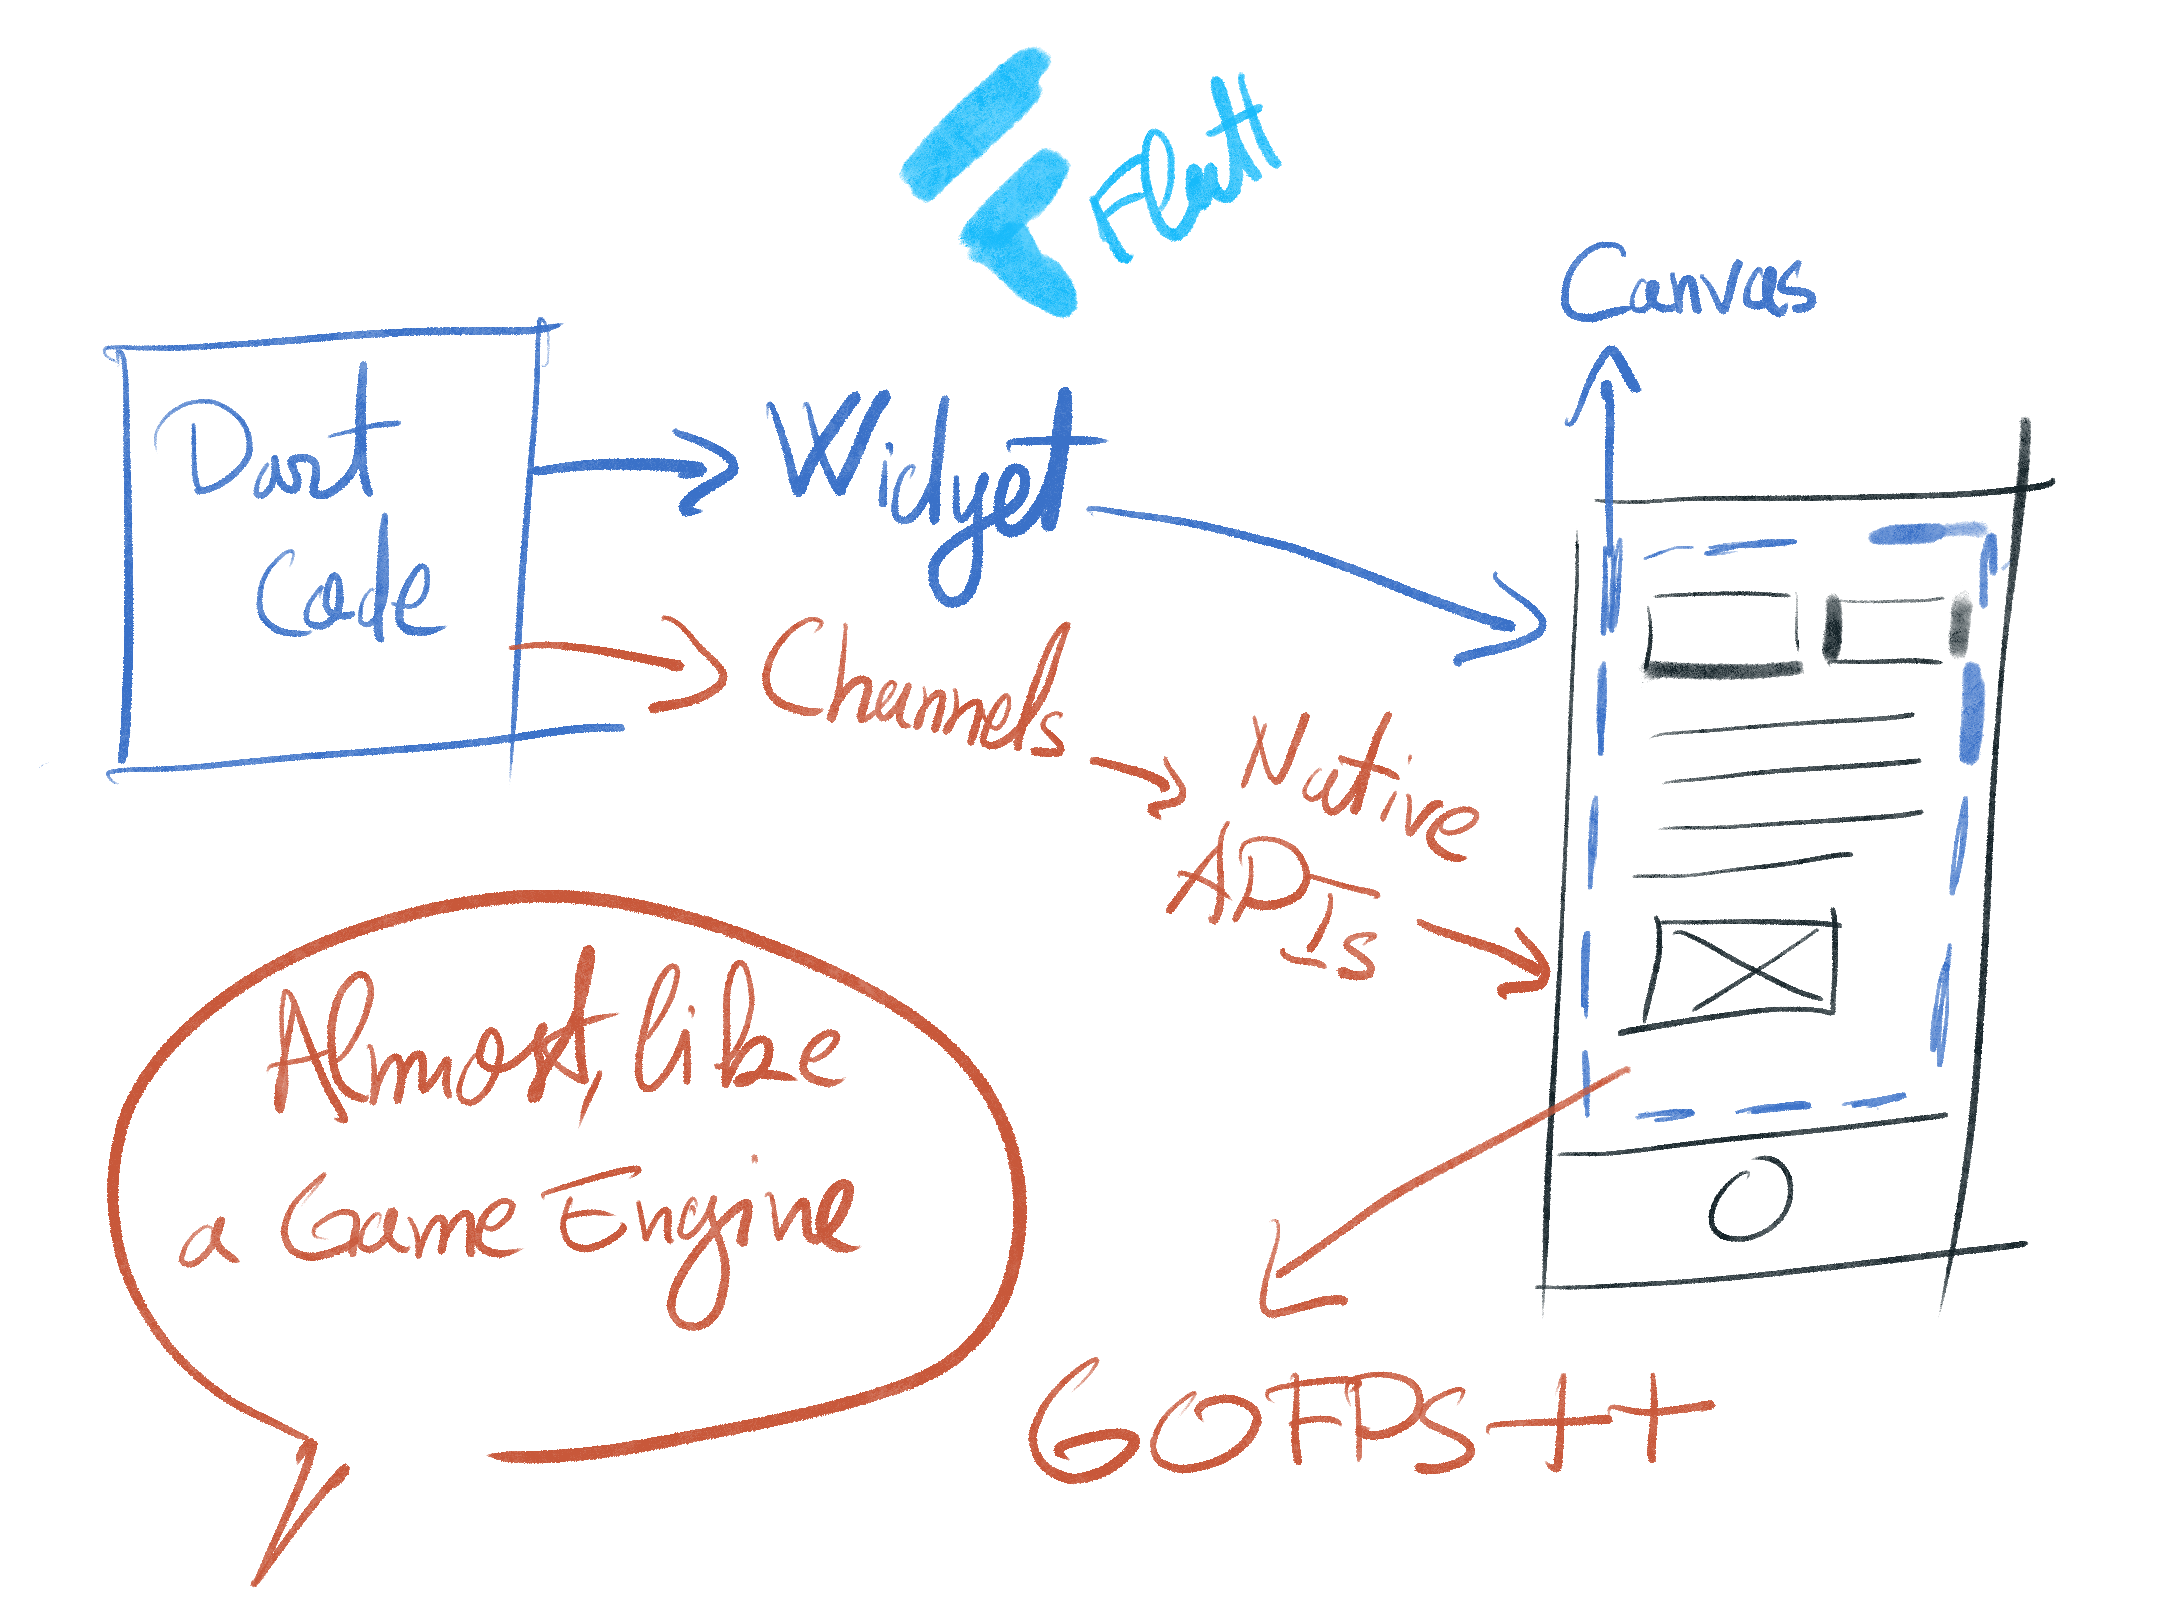 Flutt
Canvas
Dart
Code
Widget
Channels
Native
APIs
Almost, like
a Game Engine
60FPS++